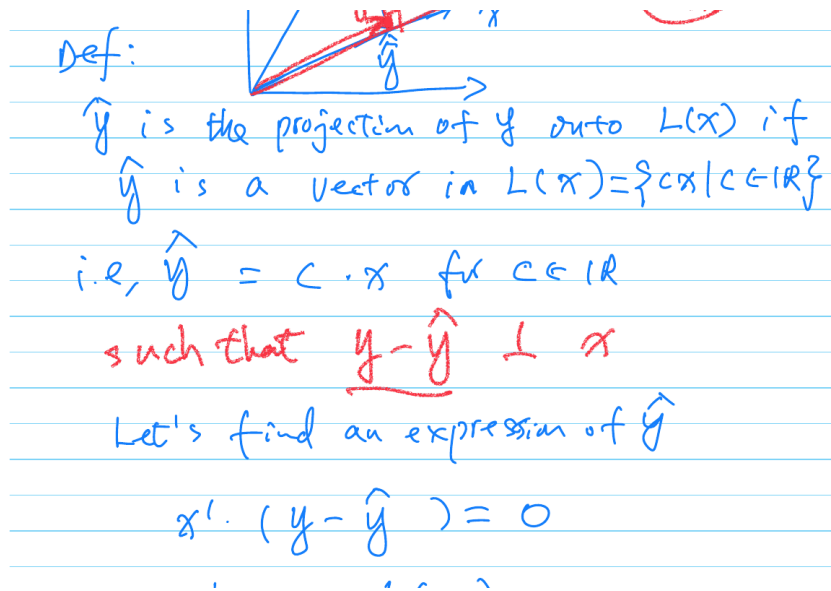 x
Def:
ŷ
ŷ is the projection of y onto L(x) if
ŷ is a vector in L(x)={cx|c∈ℝ}
i.e, ŷ = c·x for c∈ℝ
such that y-ŷ ⊥ x
Let's find an expression of ŷ
x'·(y-ŷ)=0